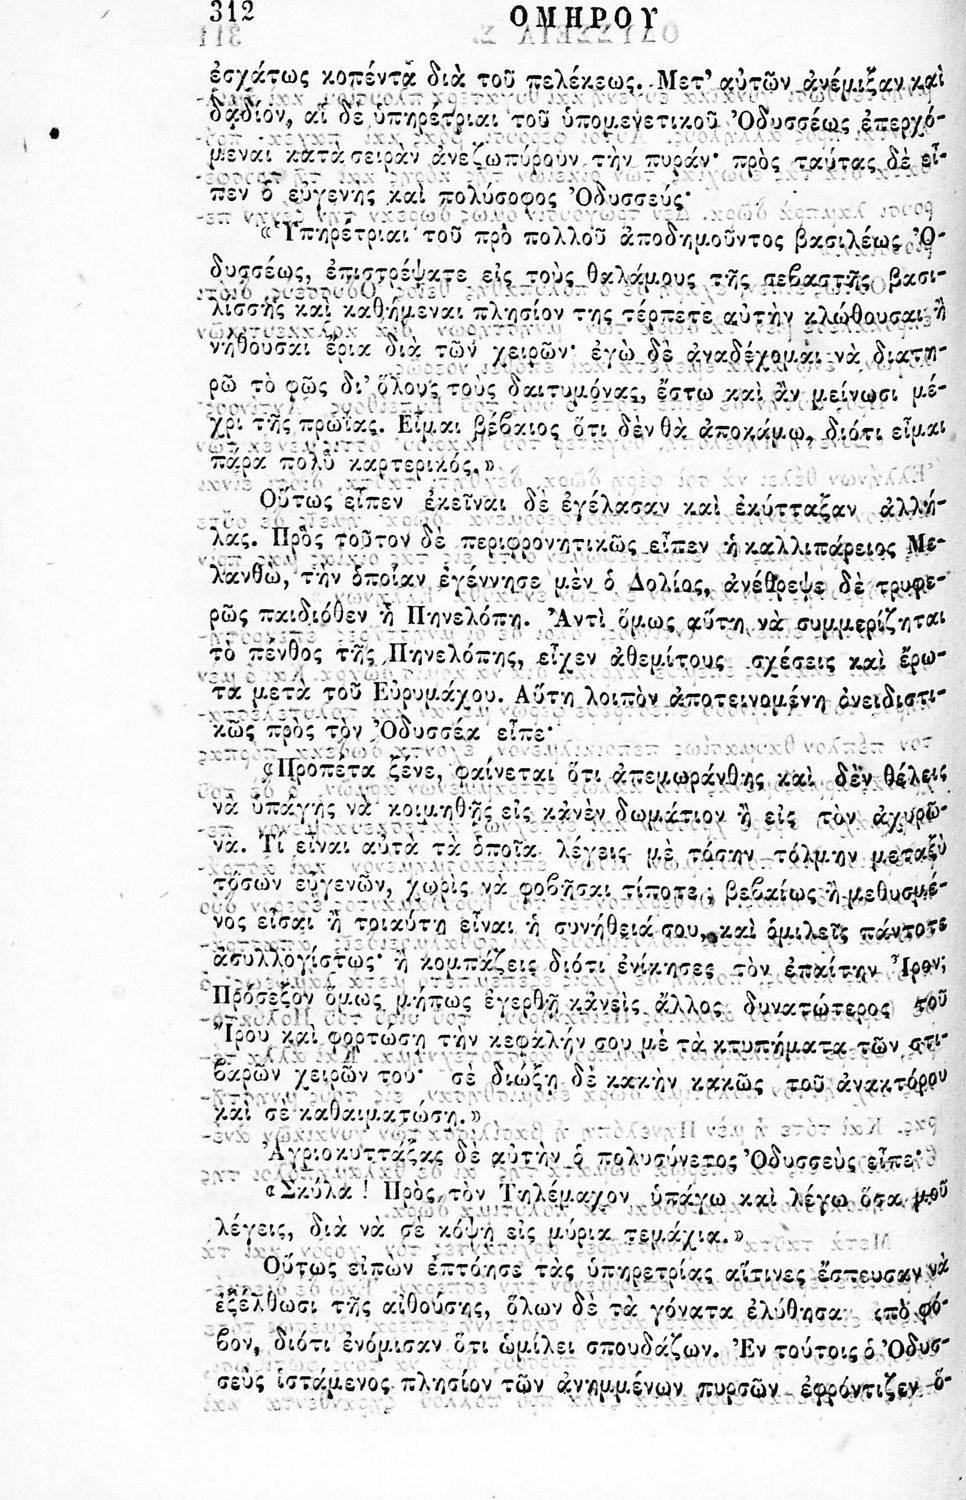 312
ΟΜΗΡΟΥ
ἐσχάτως κοπέντα διὰ τοῦ πελέκεως. Μετ’ αὐτῶν ἀνέμιξαν καὶ
δᾳδίον, αἱ δὲ ὑπηρέτριαι τοῦ ὑπομενετικοῦ Ὀδυσσέως ἐπερχό-
μεναι κατὰ σειρὰν ἀνεζωπύρουν τὴν πυράν· πρὸς ταύτας δὲ εἶ-
πεν ὁ εὐγενὴς καὶ πολύσοφος Ὀδυσσεύς·
«Ὑπηρέτριαι τοῦ πρὸ πολλοῦ ἀποδημοῦντος βασιλέως Ὀ-
δυσσέως, ἐπιστρέψατε εἰς τοὺς θαλάμους τῆς σεβαστῆς βασι-
λίσσης καὶ καθήμεναι πλησίον της τέρπετε αὐτὴν κλώθουσαι ἢ
νήθουσαι ἔρια διὰ τῶν χειρῶν· ἐγὼ δὲ ἀναδέχομαι νὰ διατη-
ρῶ τὸ φῶς δι’ ὅλους τοὺς δαιτυμόνας, ἔστω καὶ ἂν μείνωσι μέ-
χρι τῆς πρωΐας. Εἶμαι βέβαιος ὅτι δὲν θὰ ἀποκάμω, διότι εἶμαι
πάρα πολὺ καρτερικός.»
Οὕτως εἶπεν ἐκεῖναι δὲ ἐγέλασαν καὶ ἐκύτταξαν ἀλλή-
λας. Πρὸς τοῦτον δὲ περιφρονητικῶς εἶπεν ἡ καλλιπάρειος Με-
λανθὼ, τὴν ὁποίαν ἐγέννησε μὲν ὁ Δολίος, ἀνέθρεψε δὲ τρυφε-
ρῶς παιδιόθεν ἡ Πηνελόπη. Ἀντὶ ὅμως αὕτη νὰ συμμερίζηται
τὸ πένθος τῆς Πηνελόπης, εἶχεν ἀθεμίτους σχέσεις καὶ ἔρω-
τα μετὰ τοῦ Εὐρυμάχου. Αὕτη λοιπὸν ἀποτεινομένη ὀνειδιστι-
κῶς πρὸς τὸν Ὀδυσσέα εἶπε·
«Προπέτα ξένε, φαίνεται ὅτι ἀπεμωράνθης καὶ δὲν θέλεις
νὰ ὑπάγης νὰ κοιμηθῆς εἰς κἀνὲν δωμάτιον ἢ εἰς τὸν ἀχυρῶ-
να. Τί εἶναι αὐτὰ τὰ ὁποῖα λέγεις μὲ τόσην τόλμην μεταξὺ
τόσων εὐγενῶν, χωρὶς νὰ φοβῆσαι τίποτε; βεβαίως ἢ μεθυσμέ-
νος εἶσαι ἢ τοιαύτη εἶναι ἡ συνήθειά σου, καὶ ὁμιλεῖς πάντοτε
ἀσυλλογίστως· ἢ κομπάζεις διότι ἐνίκησες τὸν ἐπαίτην Ἶρον;
Πρόσεξον ὅμως μήπως ἐγερθῇ κἀνεὶς ἄλλος δυνατώτερος τοῦ
Ἴρου καὶ φορτώσῃ τὴν κεφαλήν σου μὲ τὰ κτυπήματα τῶν στι-
βαρῶν χειρῶν του· σὲ διώξῃ δὲ κακὴν κακῶς τοῦ ἀνακτόρου
καὶ σὲ καθαιματώσῃ.»
Ἀγριοκυττάξας δὲ αὐτὴν ὁ πολυσύνετος Ὀδυσσεὺς εἶπε·
«Σκύλα! Πρὸς τὸν Τηλέμαχον ὑπάγω καὶ λέγω ὅσα μοῦ
λέγεις, διὰ νὰ σὲ κόψῃ εἰς μύρια τεμάχια.»
Οὕτως εἰπὼν ἐπτόησε τὰς ὑπηρετρίας αἵτινες ἔσπευσαν νὰ
ἐξέλθωσι τῆς αἰθούσης, ὅλων δὲ τὰ γόνατα ἐλύθησα ἀπὸ φό-
βον, διότι ἐνόμισαν ὅτι ὡμίλει σπουδάζων. Ἐν τούτοις ὁ Ὀδυσ-
σεὺς ἱστάμενος πλησίον τῶν ἀνημμένων πυρσῶν ἐφρόντιζεν ὅ-